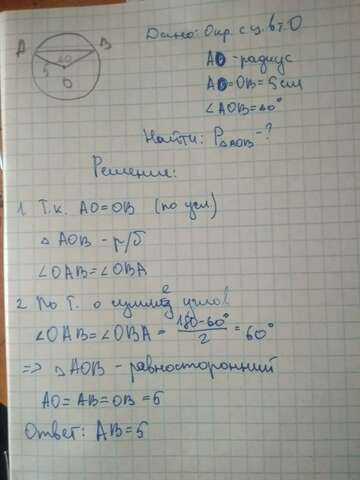 A B
60
5
O
Дано: Окр. с ц. в т. O
AO - радиус
AO=OB=5см
∠AOB=60°
Найти: P△AOB-?
Решение:
1. Т.к. AO=OB (по усл.)
△AOB - р/б
∠OAB=∠OBA
2 По т. о сумме углов
∠OAB=∠OBA = 180-60°/2 = 60°
=> △AOB - равносторонний
AO=AB=OB=5
Ответ: AB=5